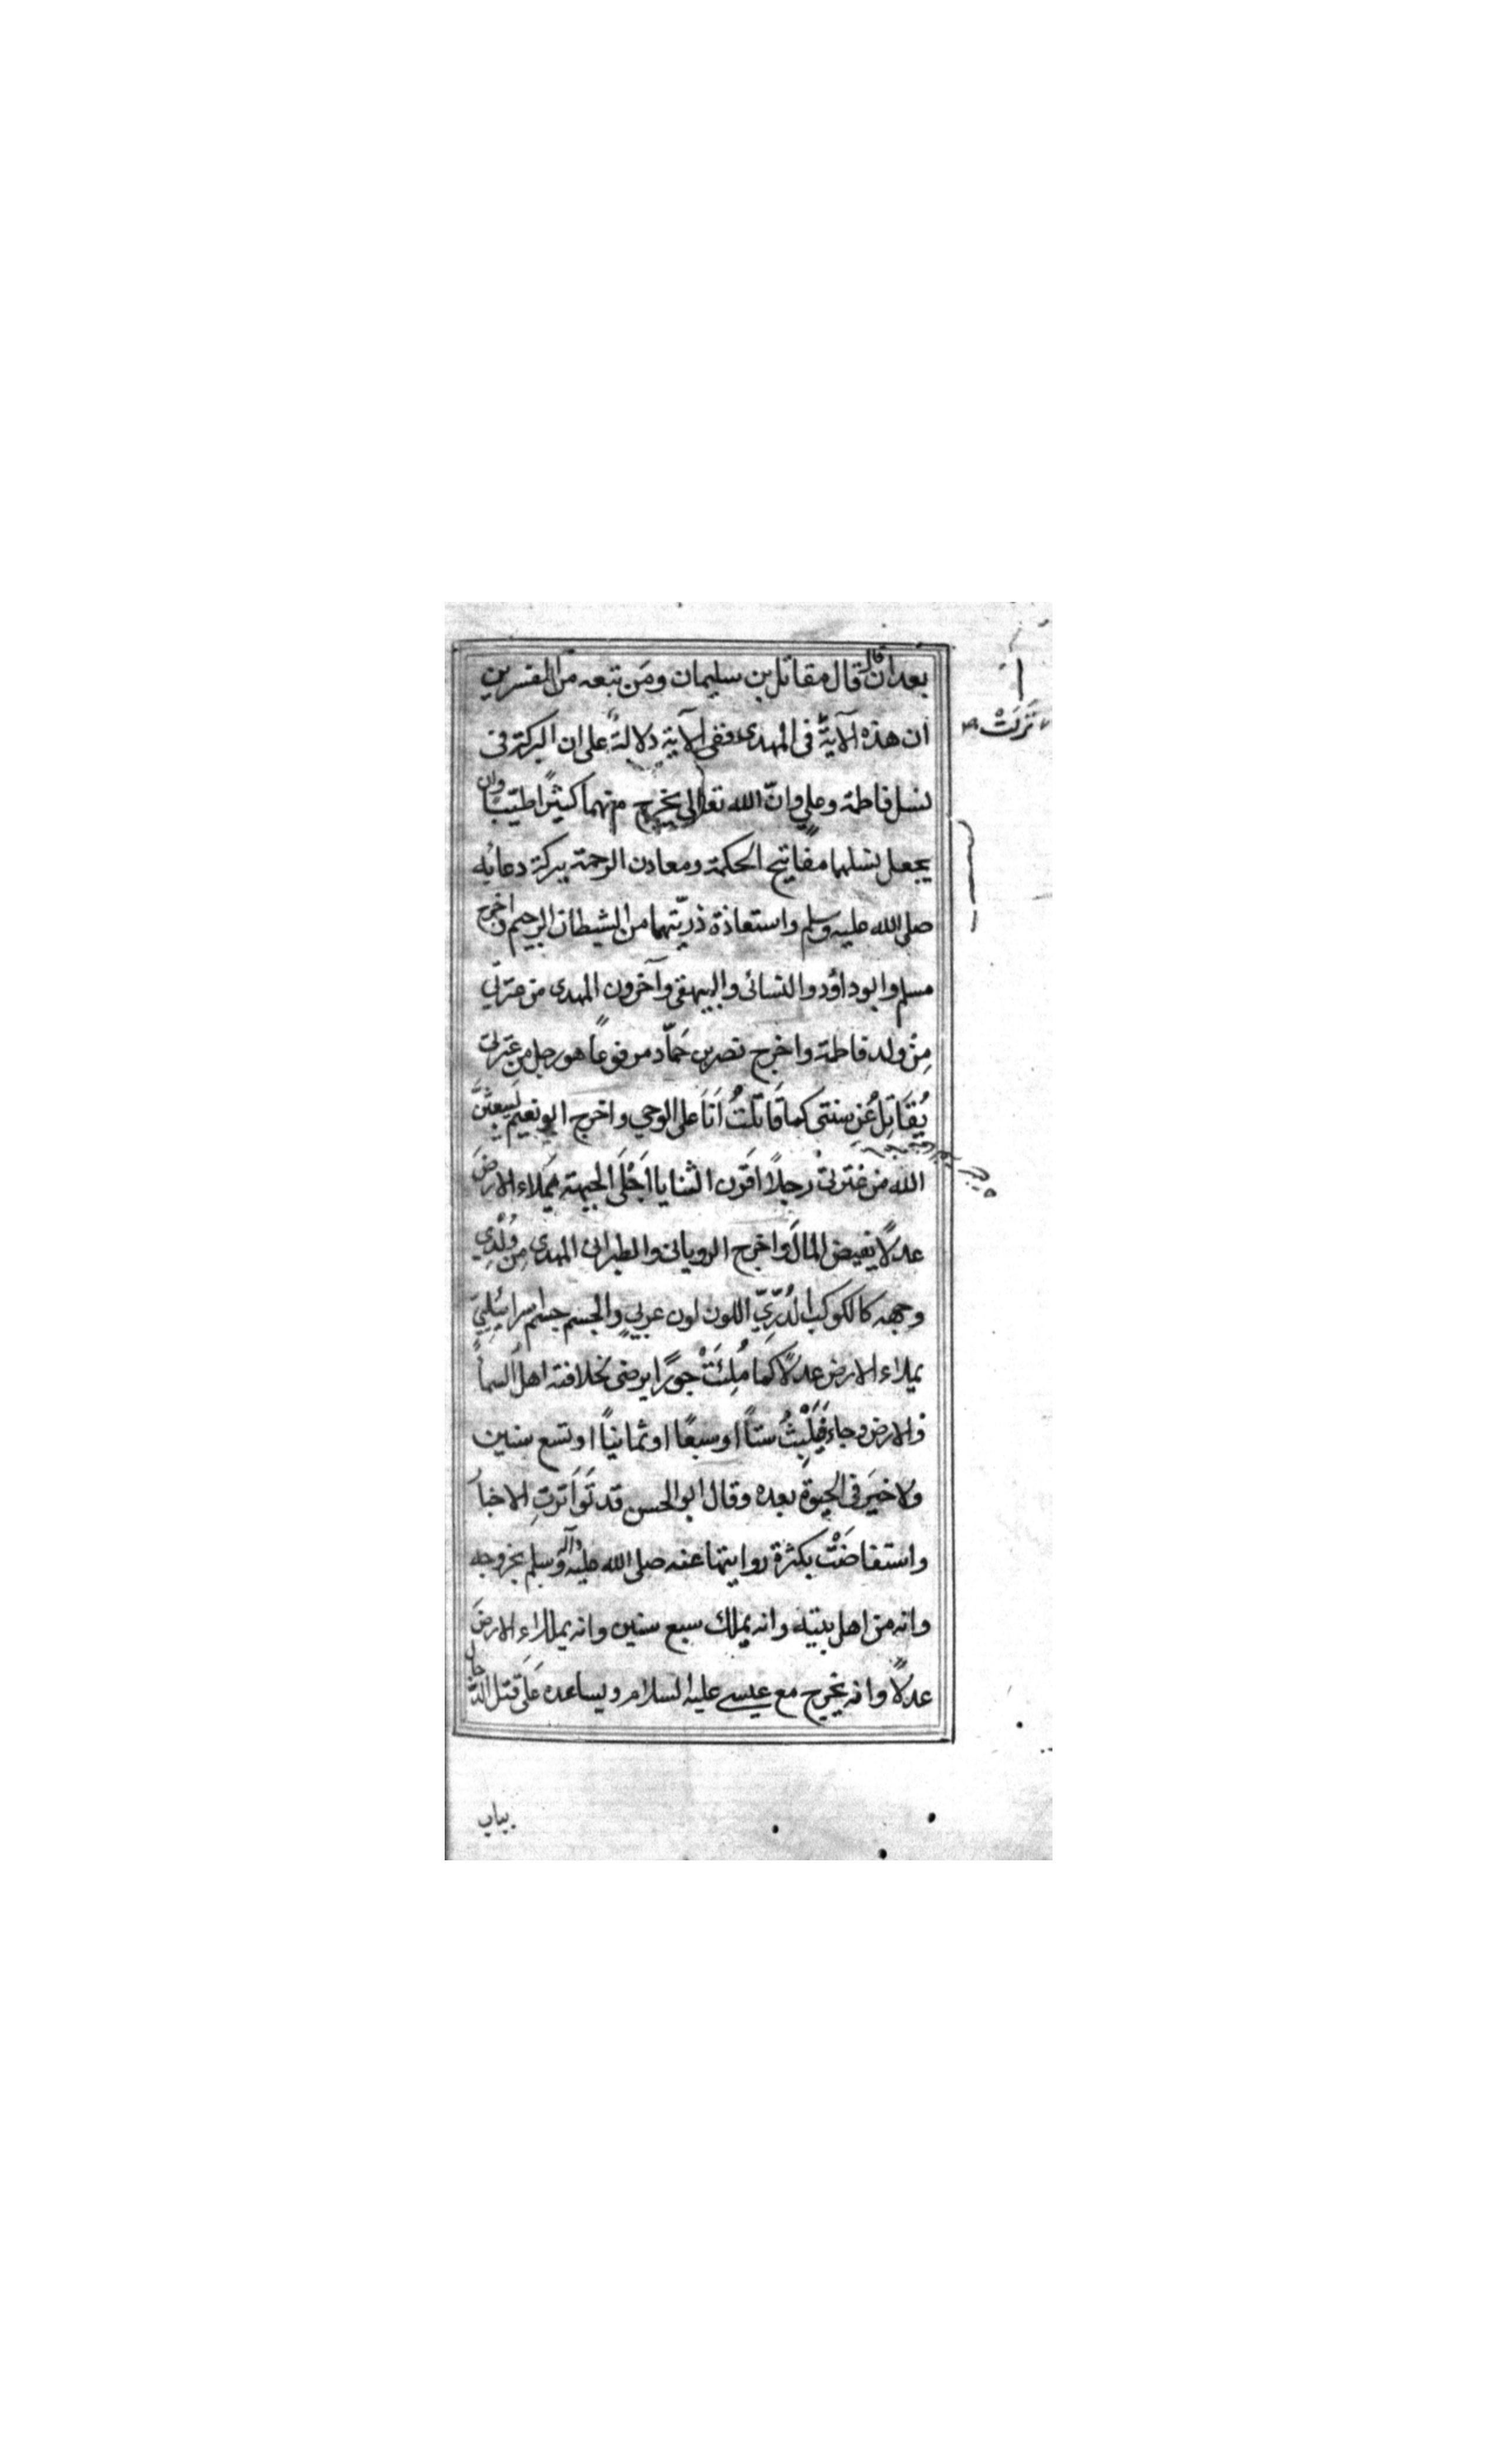 بعد ان قال قال مقاتل بن سليمان ومَن تبعه من المفسرين
ان هذه الآية فى المهدى ففى الآية دلالةٌ على ان البركة فى
نَزَلَتْ
نسل فاطمة وعلي وانّ الله تعالى يخرج منهما كثيرًا طيّبًا وان
يجعل نسلهما مفاتيح الحكمة ومعادن الرحمة ببركة دعائه
صلى الله عليه وسلم واستعاذة ذريّتهما من الشيطان الرجيم واخرج
مسلم وابو داؤد والنسائى والبيهقى وآخرون المهدى من عترتي
مِنْ ولد فاطمة واخرج نصر بن حَمّاد مرفوعًا هو رجل من عِترتى
يُقَاتِلُ عَن سنتى كما قَاتَلْتُ اَنَا على الوحي واخرج ابو نعيم لَيبعثَنّ
الله من عترتى رجلاً افرن الثنايا اَجْلَى الجبهة يملاء الارضَ
عدلاً يفيض المالَ واخرج الرويانى والطبرانى المهدى مِن وُلْدِي
وجهه كالكوكب الدُرّيّ اللون لون عربيٍ والجسم جسم اسرائيلِيّ
يملاء الارض عدلاً كما مُلِئَتْ جورًا يرضى بخلافته اهل السماء
والارض وجاء فَيَلْبِثُ ستًا او سبعًا او ثمانيًا او تسع سنين
ولا خيرَ فى الحيوة بعده وقال ابو الحسن قد تَوَاتَرتِ الاخبار
واستفاضَتْ بكثرة روايتها عنه صلى الله عليه وآله وسلم بخروجه
وانه من اهل بيته وانه يملك سبع سنين وانه يملاء الارضَ
عدلاً وانه يخرج مع عيسى عليه السلام ويساعده عَلَى قتل الدجال
بباب